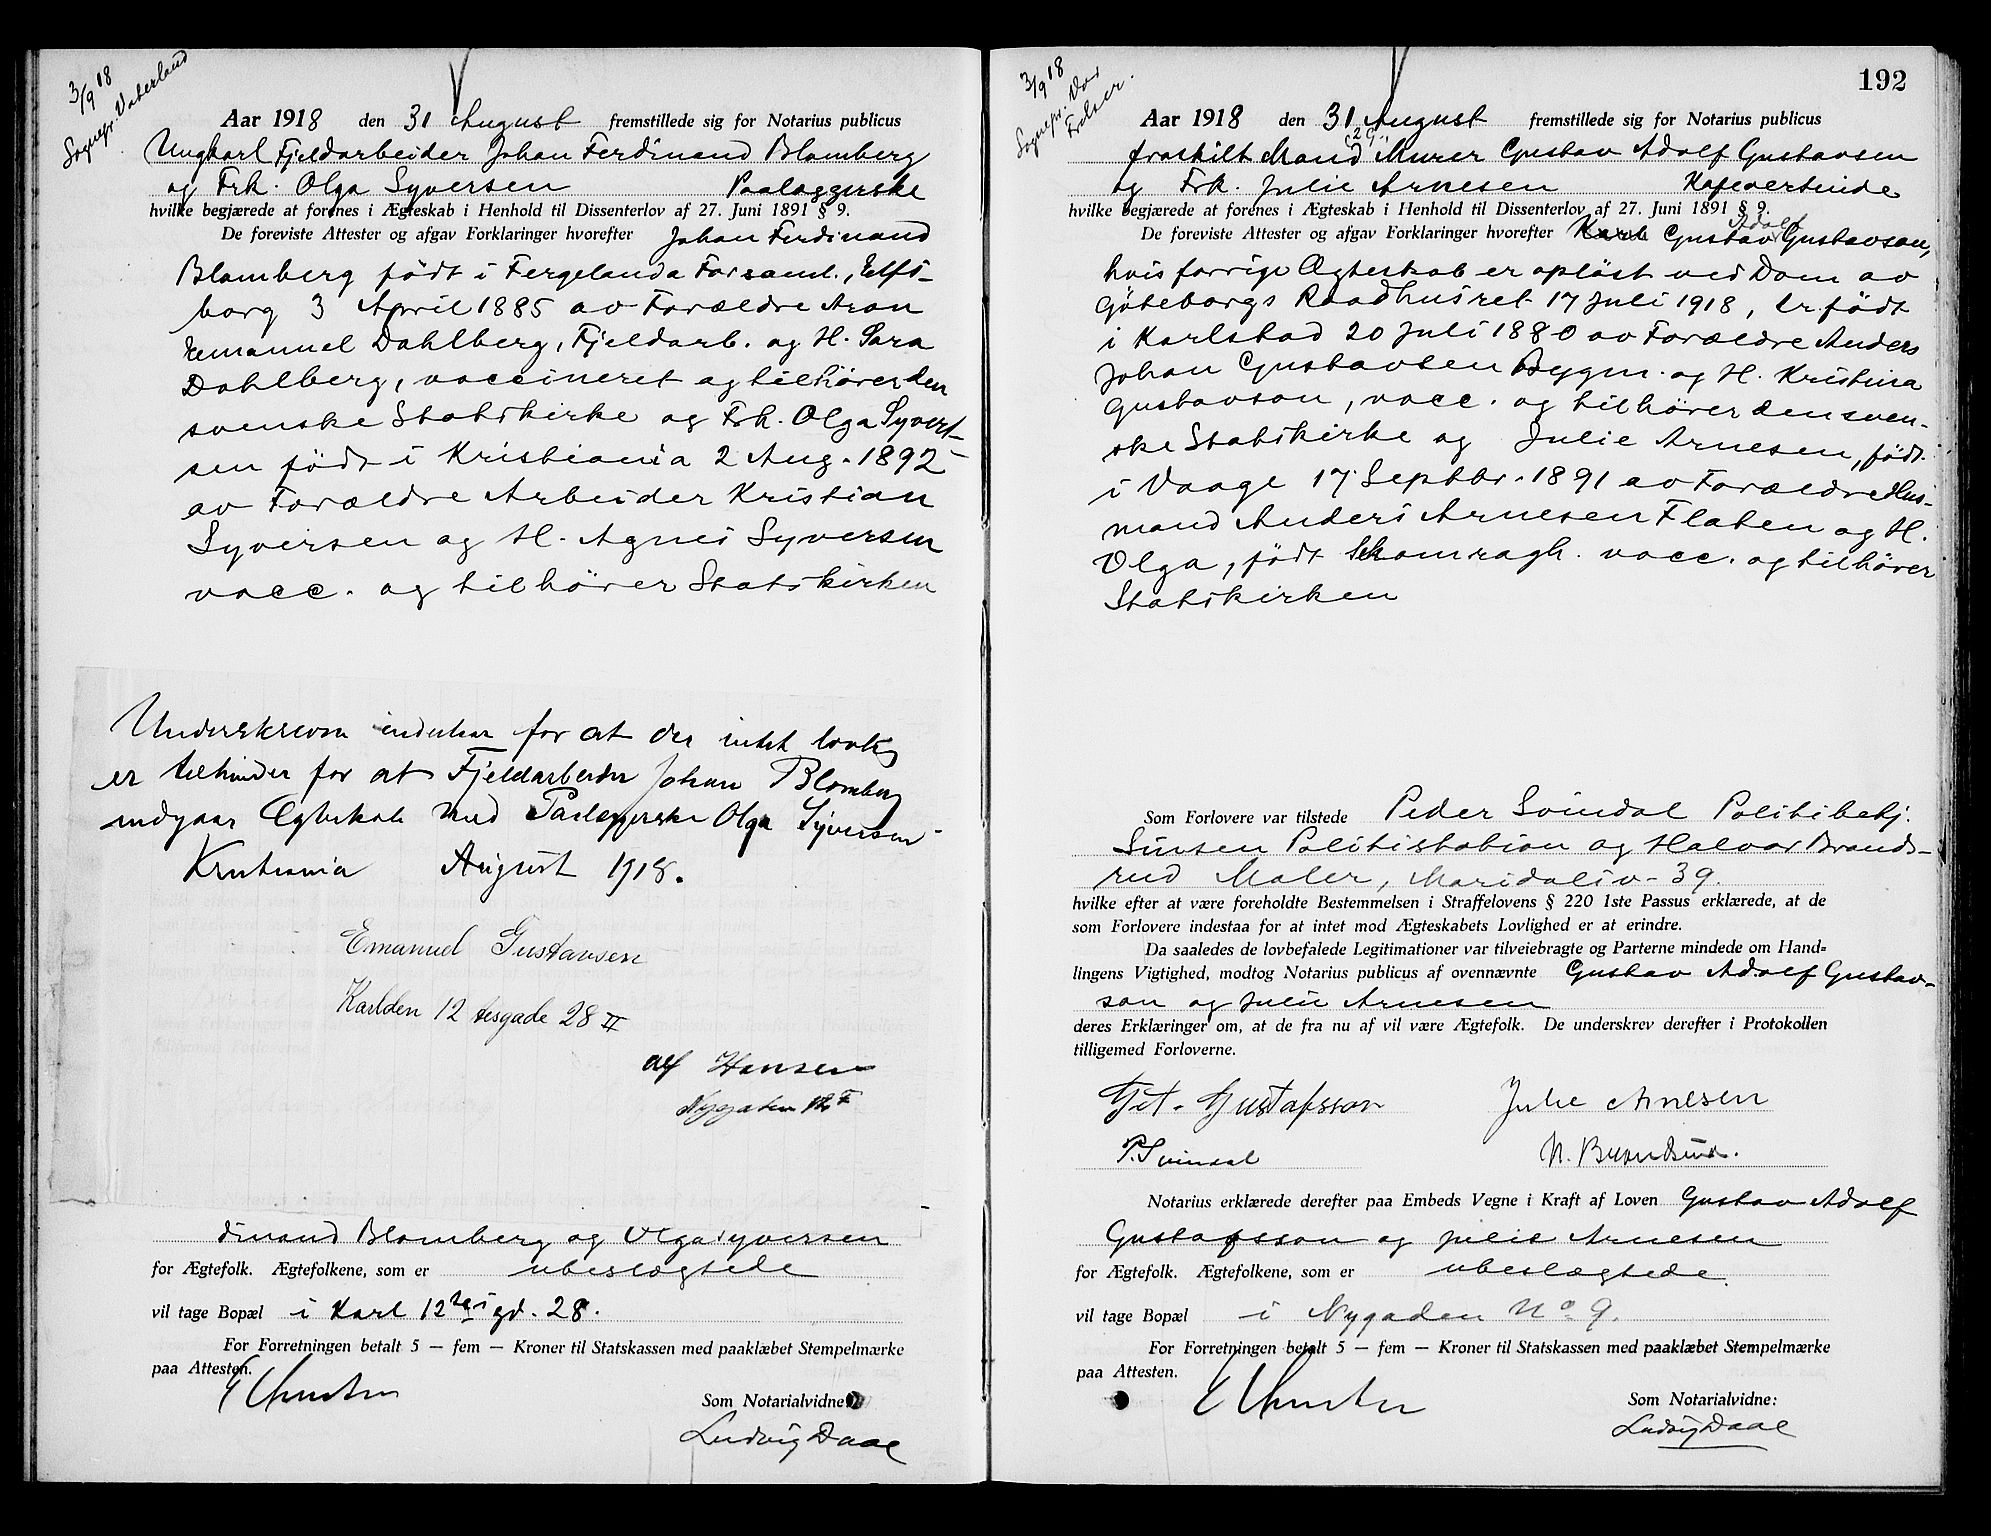 3/9 18
Sognepr. Vaterland
Aar 1918 den 31 August fremstillede sig for Notarius publicus
Ungkarl Fjeldarbeider Johan Ferdinand Blomberg
og Frk. Olga Syversen Paalæggerske
hvilke begjærede at forenes i Ægteskab i Henhold til Dissenterlov af 27. Juni 1891 § 9.
De foreviste Attester og afgav Forklaringer hvorefter Johan Ferdinand
Blomberg født i Fergelanda Forsaml., Elfs-
borg 3 April 1885 av Forældre Aron
Emanuel Dahlberg, Fjeldarb. og H. Sara
Dahlberg, vaccineret og tilhører den
svenske Statskirke og Frk. Olga Syvert-
sen født i Kristiania 2 Aug. 1892
av Forældre Arbeider Kristian
Syversen og H. Agnes Syversen
vacc. og tilhører Statskirken
Underskrevne indestaar for at der intet lovlig
er tilhinder for at Fjeldarbeider Johan Blomberg
indgaar Ægteskab med Paalæggerske Olga Syversen
Kristiania August 1918.
Emanuel Gustavsen
Karl den 12 tesgade 28 II
Alf Hansen
Nygaten 12 F
dinand Blomberg og Olga Syversen
for Ægtefolk. Ægtefolkene, som er ubeslægtede
vil tage Bopæl i Karl 12tes gd. 28.
For Forretningen betalt 5 — fem — Kroner til Statskassen med paaklæbet Stempelmærke
paa Attesten.
Som Notarialvidne
Ludvig Daae
192
3/9 18
Sognepr. Vor
Frelser.
Aar 1918 den 31 August fremstillede sig for Notarius publicus
fraskilt Mand Murer Gustav Adolf Gustavsen
og Frk. Julie Arnesen Kafevertinde
hvilke begjærede at forenes i Ægteskab i Henhold til Dissenterlov af 27. Juni 1891 § 9.
De foreviste Attester og afgav Forklaringer hvorefter Karl Gustav Adolf Gustavson,
hvis forrige Ægteskab er opløst ved Dom av
Göteborgs Raadhusret 17 Juli 1918, er født
i Karlstad 20 Juli 1880 av Forældre Anders
Johan Gustavsen Bygm. og H. Kristina
Gustavson, vacc. og tilhører den sven-
ske Statskirke og Julie Arnesen, født
i Vaage 17 Septbr. 1891 av Forældre Hus-
mand Anders Arnesen Flaten og H.
Olga, født vacc. og tilhører
Statskirken
Som Forlovere var tilstede Peder Svindal Politibetj.
Sinsen Politistation og Halvor Brands-
rud Maler, Maridalsv. 39.
hvilke efter at være foreholdte Bestemmelsen i Straffelovens § 220 1ste Passus erklærede, at de
som Forlovere indestaa for at intet mod Ægteskabets Lovlighed er at erindre.
Da saaledes de lovbefalede Legitimationer var tilveiebragte og Parterne mindede om Hand-
lingens Vigtighed, modtog Notarius publicus af ovennævnte Gustav Adolf Gustav-
son og Julie Arnesen
deres Erklæringer om, at de fra nu af vil være Ægtefolk. De underskrev derefter i Protokollen
tilligemed Forloverne.
Gustafsson Julie Arnesen
P. Svindal H. Brandsrud.
Notarius erklærede derefter paa Embeds Vegne i Kraft af Loven Gustav Adolf
Gustafsson og Julie Arnesen
for Ægtefolk. Ægtefolkene, som er ubeslægtede.
vil tage Bopæl i Nygaden No 9.
For Forretningen betalt 5 — fem — Kroner til Statskassen med paaklæbet Stempelmærke
paa Attesten.
Som Notarialvidne:
Ludvig Daae